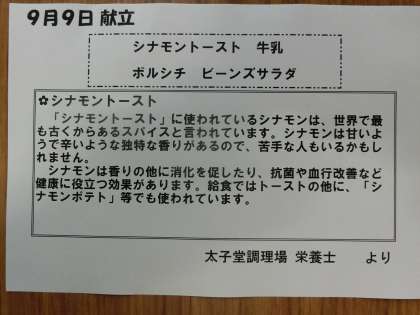 9月9日 献立
シナモントースト　牛乳
ボルシチ　ビーンズサラダ
✿シナモントースト
「シナモントースト」に使われているシナモンは、世界で最
も古くからあるスパイスと言われています。シナモンは甘いよ
うで辛いような独特な香りがあるので、苦手な人もいるかもし
れません。
シナモンは香りの他に消化を促したり、抗菌や血行改善など
健康に役立つ効果があります。給食ではトーストの他に、「シ
ナモンポテト」等でも使われています。
太子堂調理場 栄養士　　より